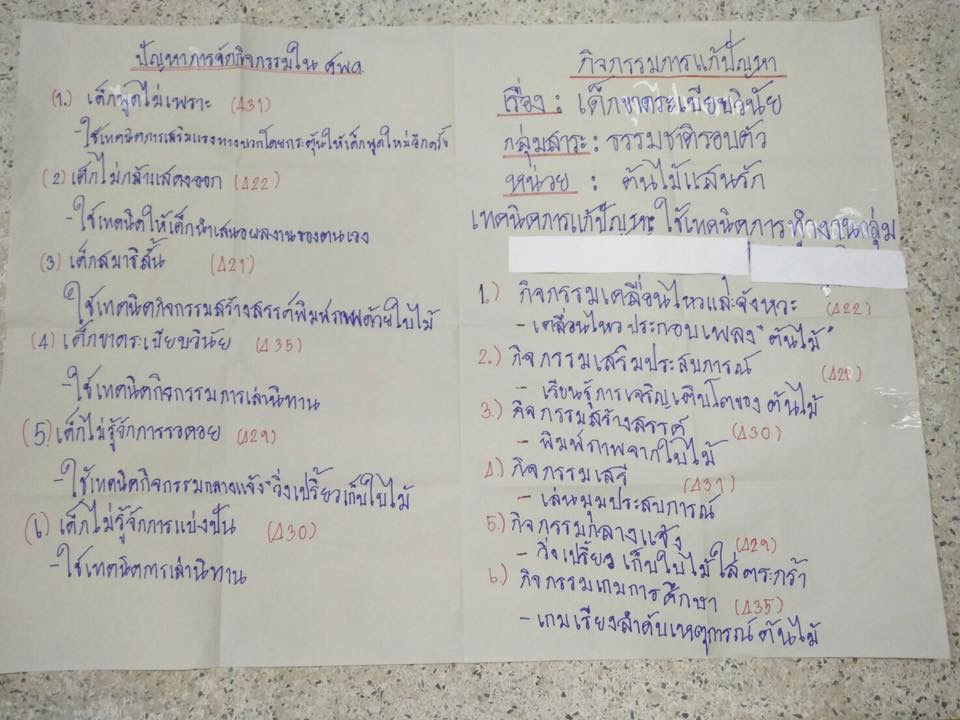 ปัญหาการจัดกิจกรรมใน ศพด.
(1.) เด็กพูดไม่เพราะ (Δ31)
-ใช้เทคนิคการเสริมแรงทางบวกโดยกระตุ้นให้เด็กพูดใหม่อีกครั้ง
(2) เด็กไม่กล้าแสดงออก (Δ22)
-ใช้เทคนิคให้เด็กนำเสนอผลงานของตนเอง
(3) เด็กสมาธิสั้น (Δ21)
ใช้เทคนิคกิจกรรมสร้างสรรค์พิมพ์ภาพด้วยใบไม้
(4) เด็กขาดระเบียบวินัย (Δ35)
-ใช้เทคนิคกิจกรรมการเล่านิทาน
(5) เด็กไม่รู้จักการรอคอย (Δ29)
-ใช้เทคนิคกิจกรรมกลางแจ้ง"วิ่งเปรี้ยวเก็บใบไม้
(6) เด็กไม่รู้จักการแบ่งปัน (Δ30)
-ใช้เทคนิคการเล่านิทาน
กิจกรรมการแก้ปัญหา
เรื่อง : เด็กขาดระเบียบวินัย
กลุ่มสาระ : ธรรมชาติรอบตัว
หน่วย : ต้นไม้แสนรัก
เทคนิคการแก้ปัญหา: ใช้เทคนิคการทำงานกลุ่ม
1.) กิจกรรมเคลื่อนไหวและจังหวะ (Δ22)
-เคลื่อนไหวประกอบเพลง"ต้นไม้"
2.) กิจกรรมเสริมประสบการณ์
- เรียนรู้การเจริญเติบโตของต้นไม้
3.) กิจกรรมสร้างสรรค์ (Δ30)
- พิมพ์ภาพจากใบไม้
4) กิจกรรมเสรี (Δ31)
- เล่นมุมประสบการณ์
5.) กิจกรรมกลางแจ้ง (Δ29)
- วิ่งเปรี้ยวเก็บใบไม้ใส่ตระกร้า
6.) กิจกรรมเกมการศึกษา (Δ35)
- เกมเรียงลำดับเหตุการณ์ต้นไม้